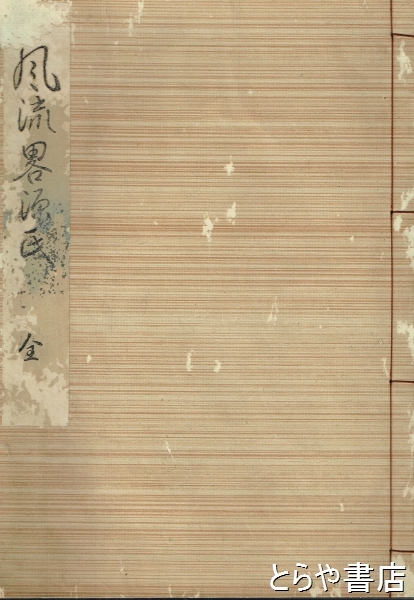 風流畧源氏
全
とらや書店